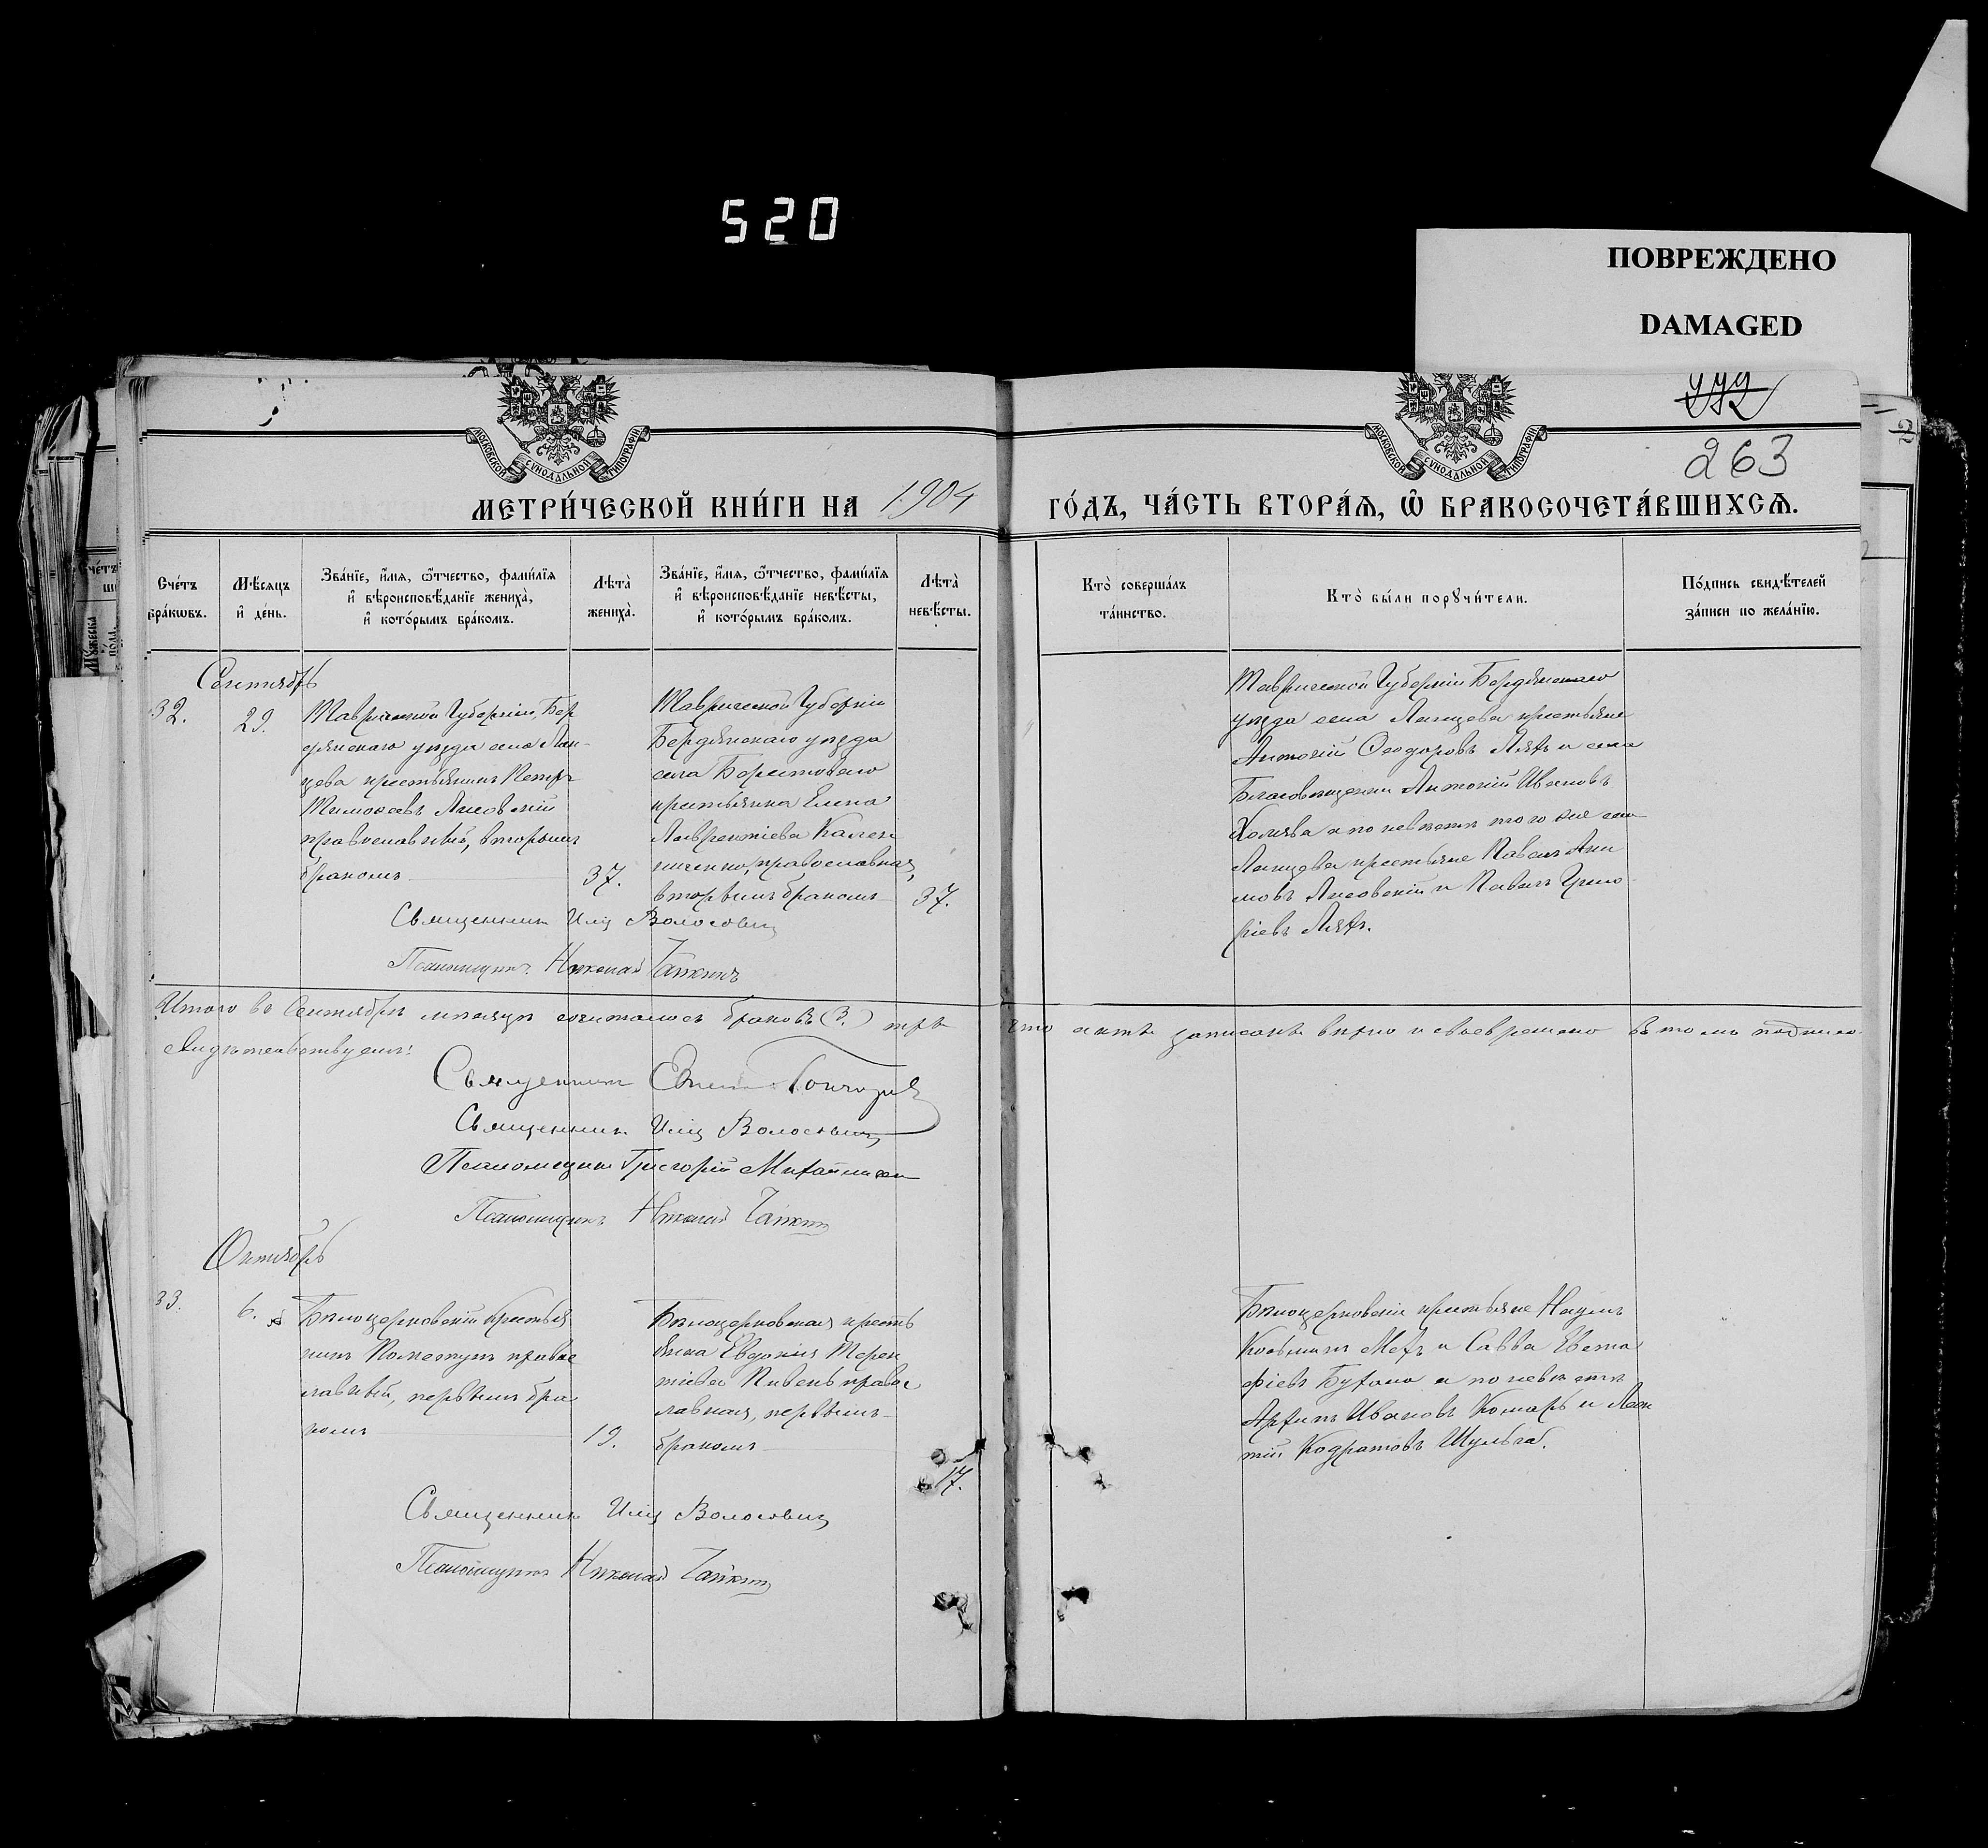 520
ПОВРЕЖДЕНО
DAMAGED
263
МОСКОВСКОЙ СУНОДАЛЬНОЙ ТИПОГРАФІИ
МОСКОВСКОЙ СУНОДАЛЬНОЙ ТИПОГРАФІИ
МЕТРИ́ЧЕСКОЙ КНИ́ГИ НА 1904
ГО́ДЪ, ЧА́СТЬ ВТОРА́Ѧ, Ѽ БРАКОСОЧЕТА́ВШИХСѦ.
Сче́тъ
бра́кѡвъ.
Мѣ́сѧцъ
и҆ де́нь.
Зва́нїе, и҆́мѧ, ѻ҆́тчество, фами́лїѧ
и҆ вѣроисповѣ́данїе жениха̀,
и҆ кото́рымъ бра́комъ.
Лѣта̀
жениха̀.
Зва́нїе, и҆́мѧ, ѻ҆́тчество, фами́лїѧ
и҆ вѣроисповѣ́данїе невѣ́сты,
и҆ кото́рымъ бра́комъ.
Лѣта̀
невѣ́сты.
Кто̀ соверша́лъ
та́инство.
Кто̀ бы́ли порꙋчи́тели.
По́дпись свидѣ́телей
за́писи по жела́нїю.
Сентябрь
32.
29.
Таврической Губерніи, Бер
дянскаго уѣзда села Лан-
цева крестьянинъ Петръ
Тимоѳеевъ Лисовскій
православный, вторымъ
бракомъ
37.
Таврической Губерніи
Бердянскаго уѣзда
села Берестоваго
крестьянка Елена
Лаврентіева Калени
ченко, православная,
вторымъ бракомъ
37.
Таврической Губерніи Бердянскаго
уѣзда села Ланцева крестьяне
Антоній Ѳеодоровъ Ляхъ и села
Благовѣщенки Антоній Ивановъ
а по невѣстѣ того же села
Ланцева крестьяне Павелъ
Лисовскій и Павелъ Григо
ріевъ Ляхъ.
Священникъ Илія Волосовичъ
Псаломщикъ Николай Чайкинъ
Итого въ Сентябрѣ мѣсяцѣ сочеталось браковъ (3.) три
Что актъ записанъ вѣрно и своевременно въ томъ подписо
свидѣтельствуемъ:
Священникъ Гончаровъ
Священникъ Илія Волосовичъ
Псаломщикъ Григорій
Псаломщикъ Николай Чайкинъ
Октябрь
33.
6.
Бѣлоцерковскій крестья
нинъ правос
лавный, первымъ бра
комъ
19.
Бѣлоцерковская кресть
янка Евдокія Терен
тіева Пивень правос
лавная, первымъ
бракомъ
17.
Бѣлоцерковскіе крестьяне Наумъ
Козьминъ и Савва Евста
фіевъ а по невѣстѣ
Архипъ Ивановъ Комарь и Леон
тій Кодратовъ Шульга.
Священникъ Илія Волосовичъ
Псаломщикъ Николай Чайкинъ